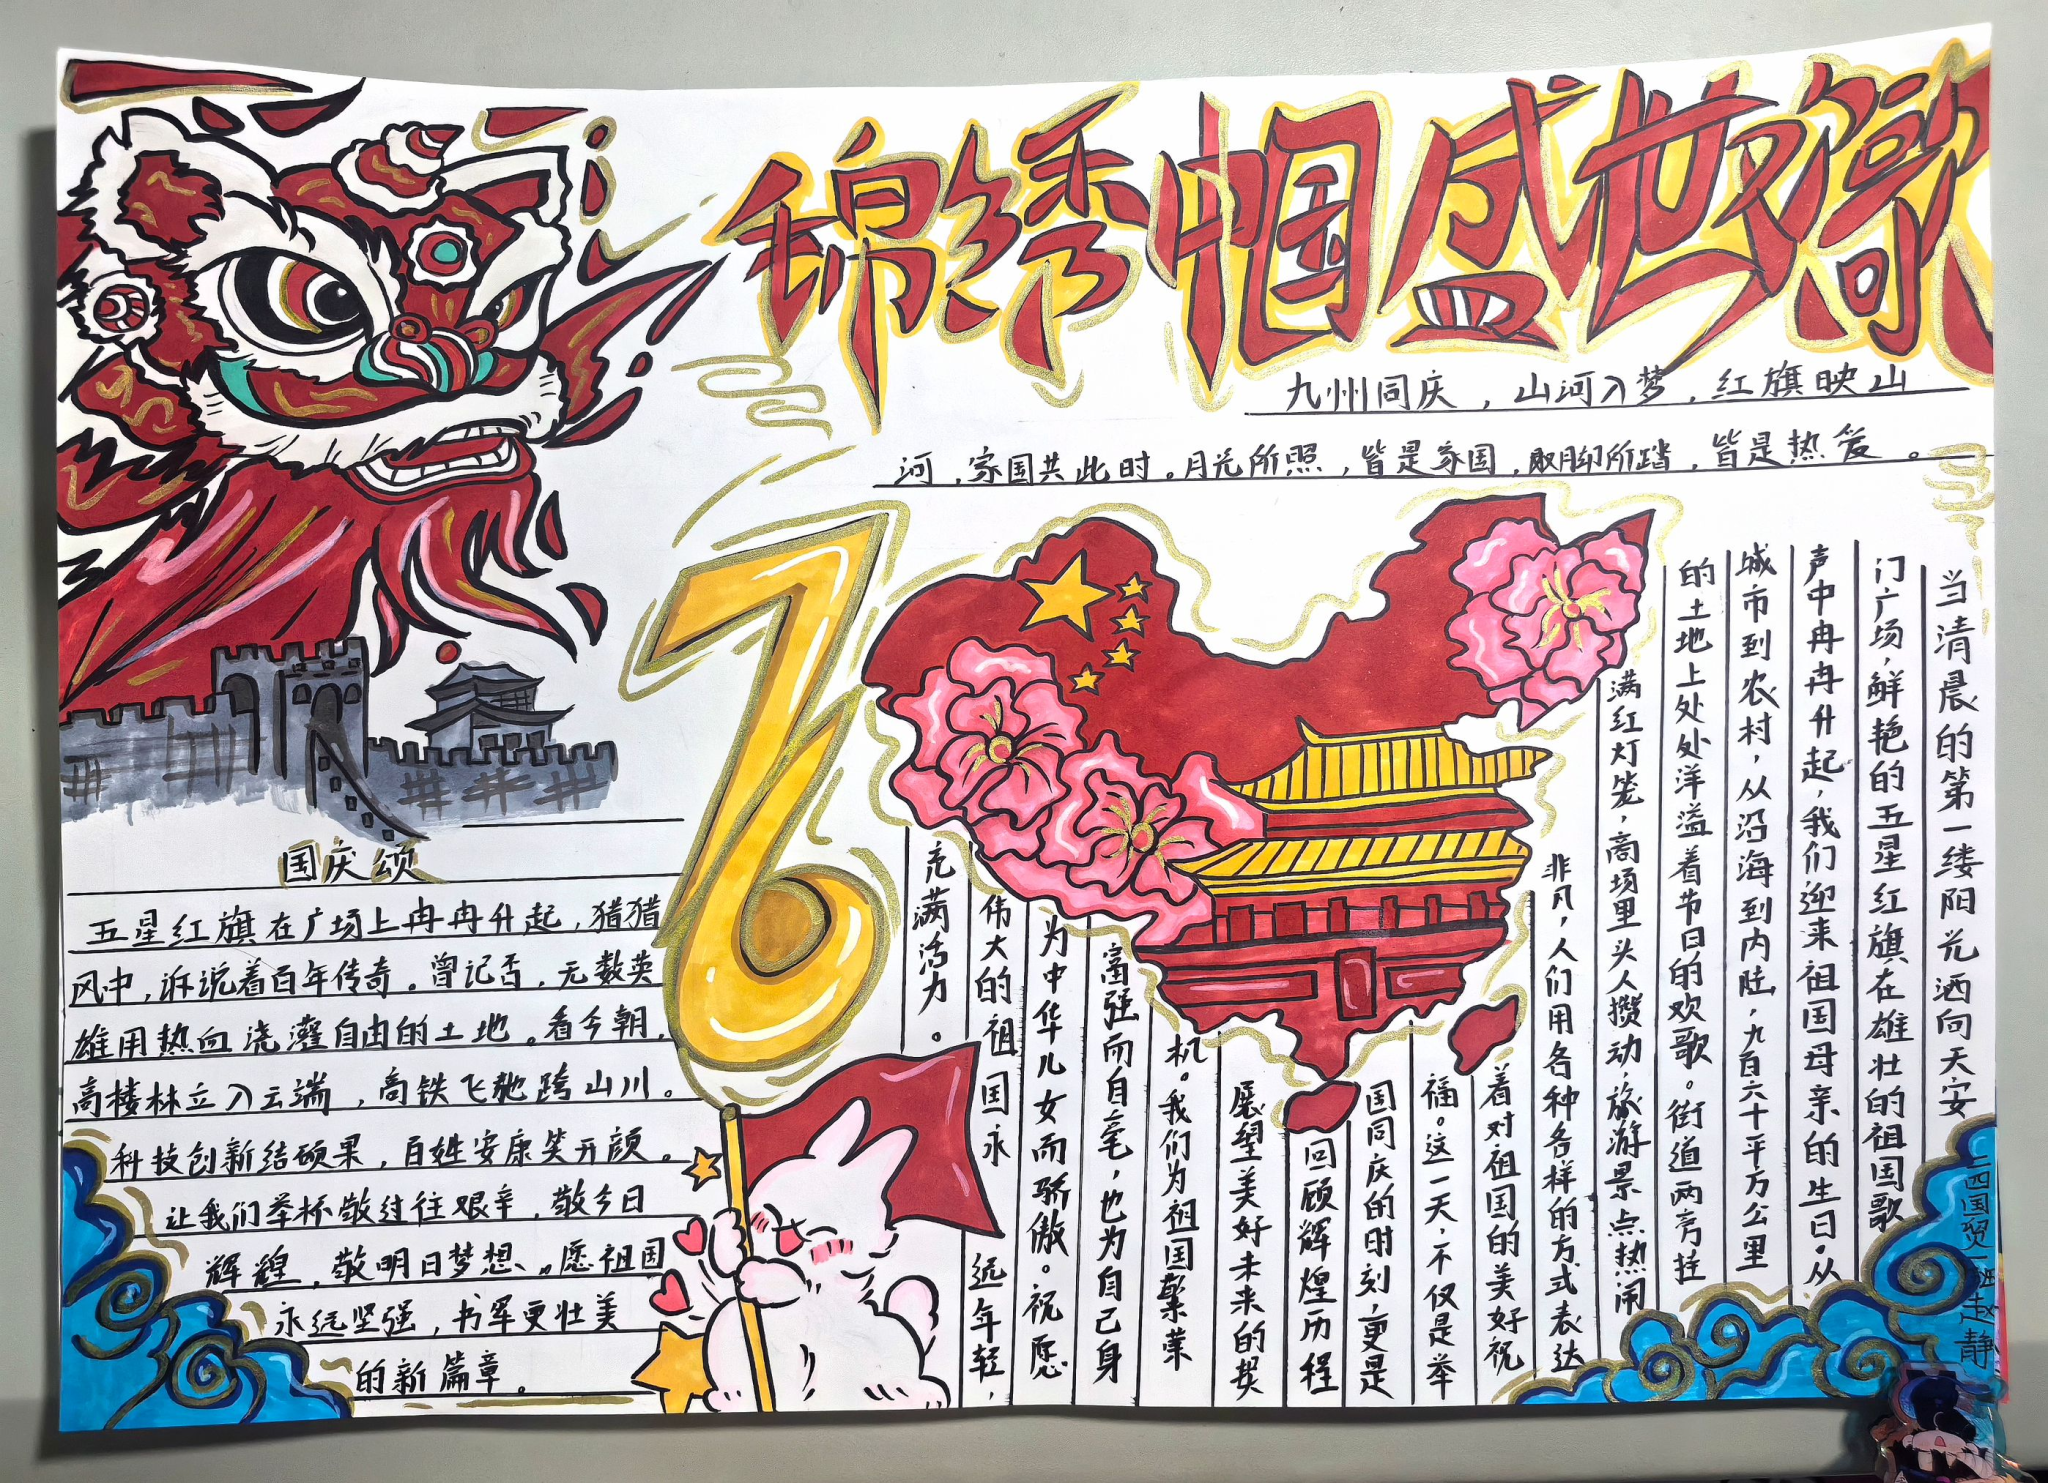 锦绣中国盛世欢歌
九州同庆，山河入梦，红旗映山
河，家国共此时。月光所照，皆是家国，双脚所踏，皆是热爱。
76
国庆颂
五星红旗在广场上冉冉升起，猎猎
风中，诉说着百年传奇。曾记否，无数英
雄用热血浇灌自由的土地。看今朝，
高楼林立入云端，高铁飞驰跨山川。
科技创新结硕果，百姓安康笑开颜。
让我们举杯敬过往艰辛，敬今日
辉煌，敬明日梦想。愿祖国
永远坚强，书写更壮美
的新篇章。
当清晨的第一缕阳光洒向天安
门广场，鲜艳的五星红旗在雄壮的祖国歌
声中冉冉升起，我们迎来祖国母亲的生日。从
城市到农村，从沿海到内陆，九百六十平方公里
的土地上处处洋溢着节日的欢歌。街道两旁挂
满红灯笼，商场里头人攒动，旅游景点热闹
非凡，人们用各种各样的方式表达
着对祖国的美好祝
福。这一天，不仅是举
国同庆的时刻，更是
回顾辉煌历程
展望美好未来的契
机。我们为祖国繁荣
富强而自豪，也为自己身
为中华儿女而骄傲。祝愿
伟大的祖国永远年轻，
充满活力。
二四国贸一班赵静